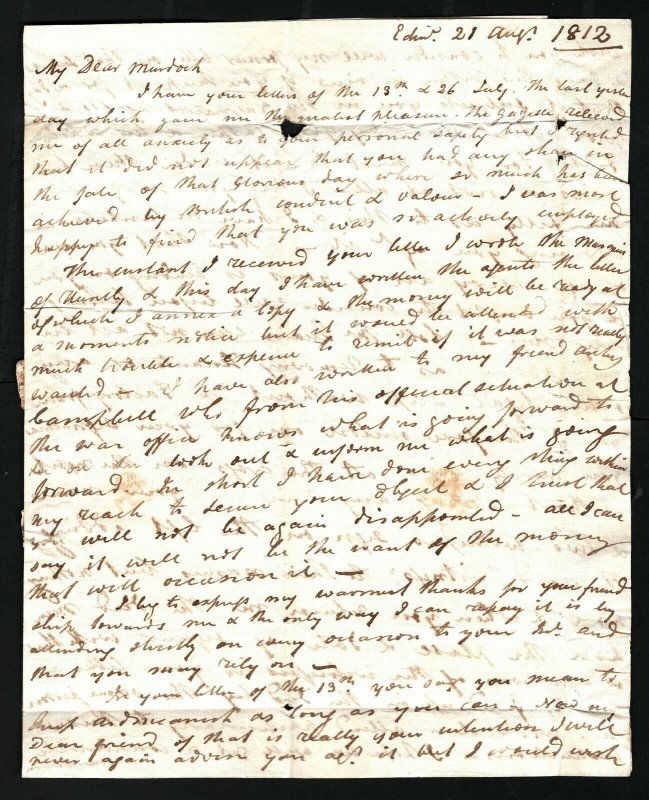 Edinr. 21 Augt. 1812
My Dear Murdoch
I have your letters of the 13th & 26 July. The last yester
day which gave me the greatest pleasure. The Gazette relieved
me of all anxiety as to your personal safety but I regretted
that it did not appear that you had any share in
the fate of that Glorious day where so much has been
achieved by British conduct & valour - I was most
happy to find that you was so actively employed
The instant I received your letter I wrote the Marquis
of Huntly & this day I have written the agents the letter
of which I annex a Copy & the money will be ready at
a moments notice but it would be attended with
much trouble & expence to remit if it was not really
wanted - I have also written to my friend
Campbell who from his official situation at
the war office knows what is going forward to
be on the look out & inform me what is going
forward. In short I have done every thing within
my reach to secure your object & I trust that
you will not be again disappointed - all I can
say it will not be the want of the money
that will occasion it -
I beg to express my warmest thanks for your friend
ship towards me & the only way I can repay it is by
attending strictly on every occasion to your Int. and
that you may rely on -
In your letter of the 13th you say you mean to
keep as long as you can - Now my
Dear friend if that is really your intention I will
never again advise you agt. it but I would wish